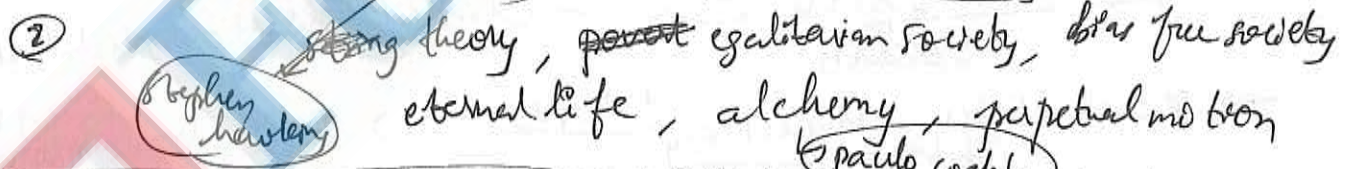 ② string theory, egalitarian society, bias free society
stephen eternal life, alchemy, perpetual motion
hawking
paulo